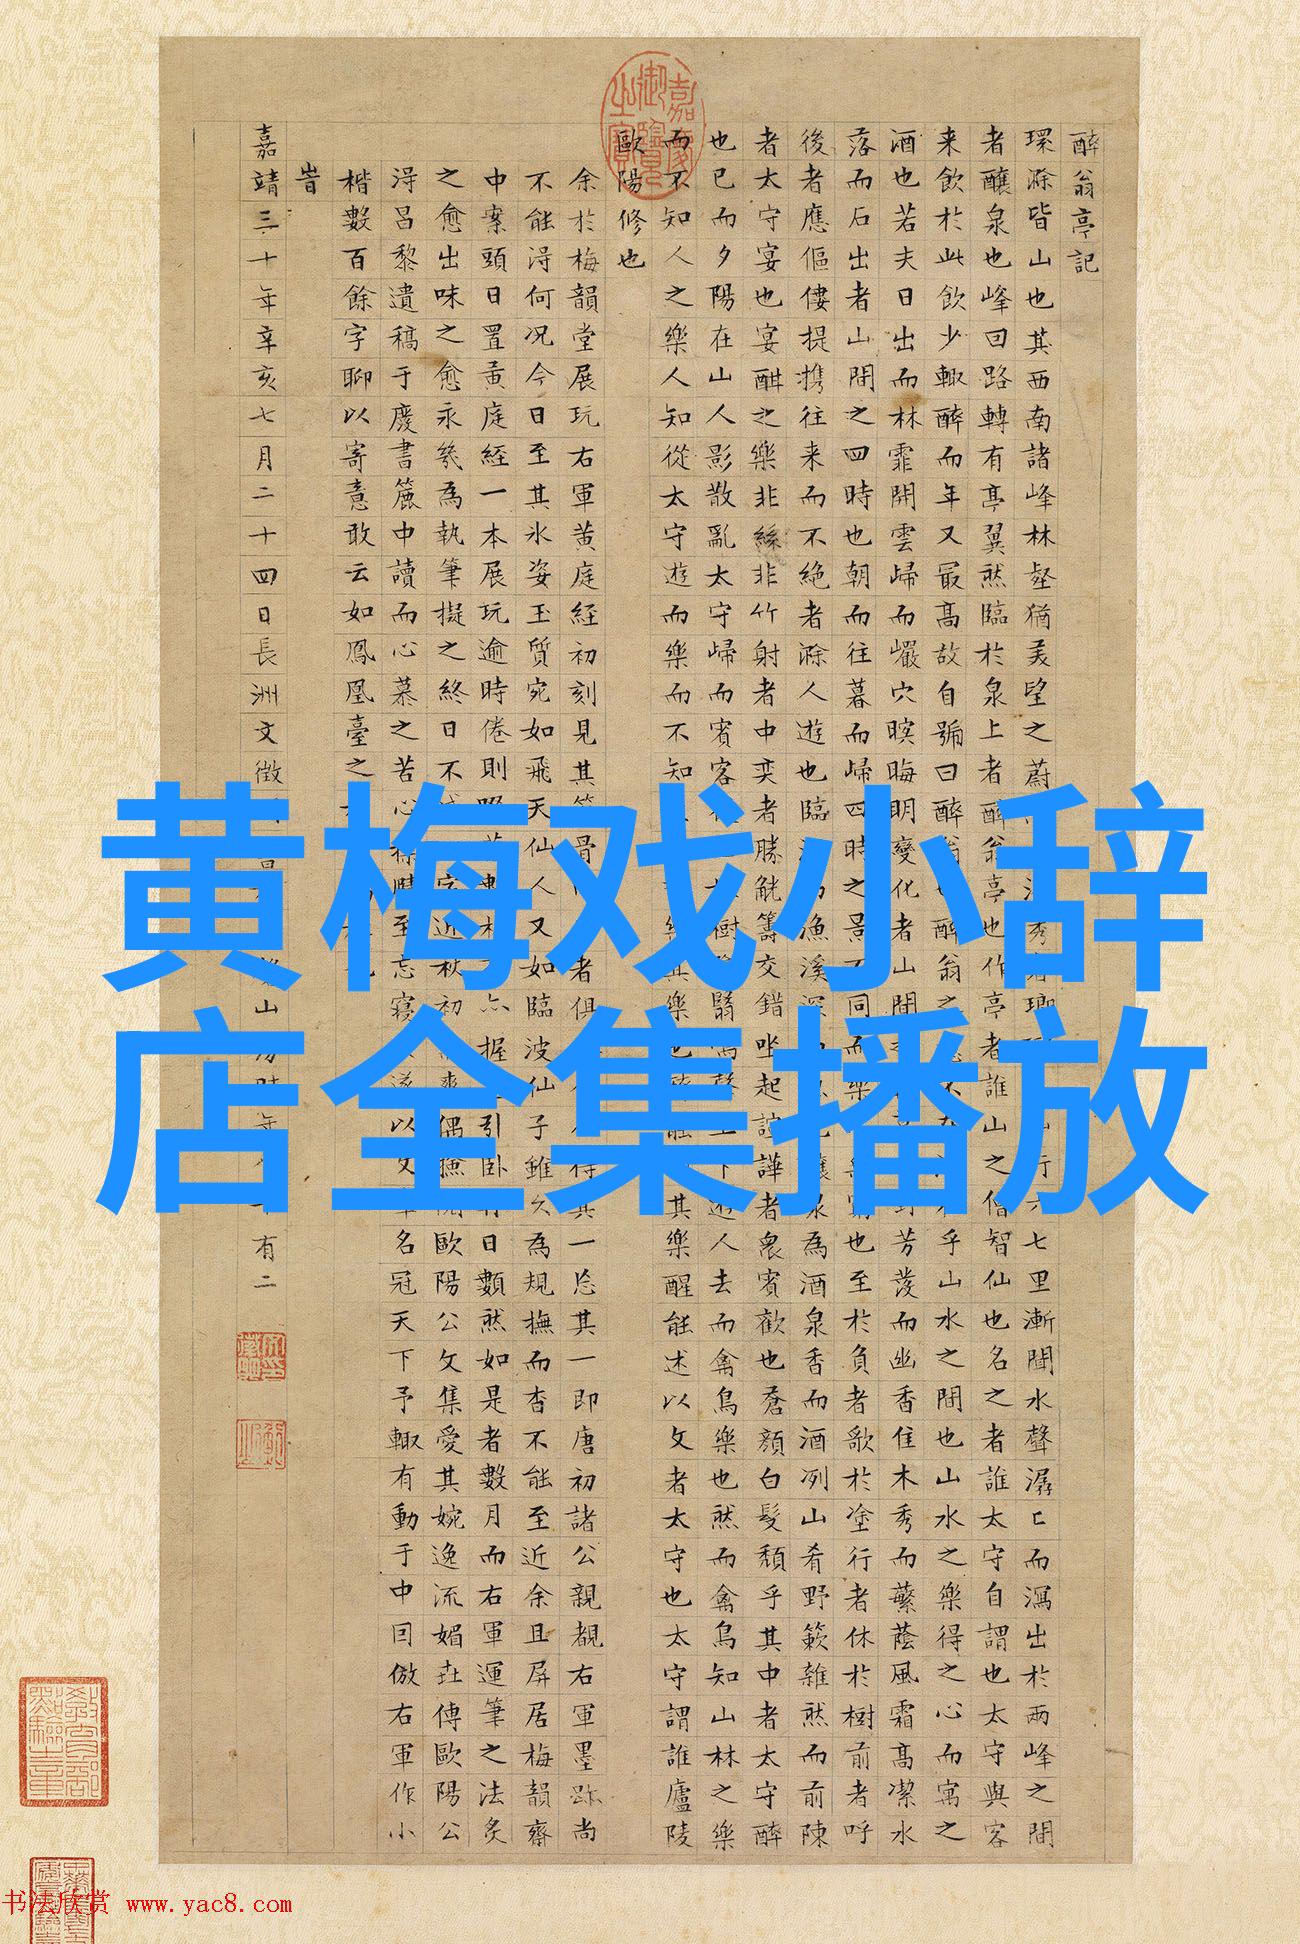 醉翁亭記
環滁皆山也其西南諸峰林壑猶美望之蔚 深秀者瑯 行六七里漸聞水聲潺〻而瀉出於兩峰之間
者釀泉也峰回路轉有亭翼然臨於泉上者醉翁亭也作亭者誰山之僧智仙也名之者誰太守自謂也太守與客
来飲於此飲少輒醉而年又最高故自號曰醉翁 醉翁之 不 乎山水之間也山水之樂得之心而寓之
酒也若夫日出而林霏開雲歸而巖穴暝晦明變化者山間 野芳發而幽香佳木秀而蘩蔭風霜高潔水
落而石出者山間之四時也朝而往暮而歸四時之景不同而樂 窮也至於負者歌於塗行者休於樹前者呼
後者應傴僂提攜往来而不絶者滁人遊也臨 漁溪深 泉為酒泉香而酒冽山肴野蔌雜然而前陳
者太守宴也宴酣之樂非絲非竹射者中奕者勝觥籌交錯坐起諠譁者衆賓歡也蒼顏白髮頹乎其中者太守醉
也已而夕陽在山人影散亂太守歸而賓客 樹 翳鳴聲上下遊人去而禽鳥樂也然而禽鳥知山林之樂
而不知人之樂人知從太守遊而樂而不知 其樂 能 其樂醒能述以文者太守也太守謂誰廬陵
歐陽修也
余於梅韻堂展玩右軍黄庭經初刻見其 骨 者俱 得其一恣其一即唐初諸公親覩右軍墨跡尚
不能淂何况今日至其氷姿玉質宛如飛天仙人又如臨波仙子雖久為規撫而杳不能至近余且屏居梅韻齋
中案頭日置黄庭經一本展玩逾時倦則 握 引卧 日數然如是者數月而右軍運筆之法炙
之愈出味之愈永幾為執筆擬之終日不 字近秋初 偶 歐陽公文集愛其婉逸流媚並傳歐陽公
淂昌黎遺稿于廢書簏中讀而心慕之苦心 至忘寢 遂以文章名冠天下予輒有動于中因倣右軍作小
楷數百餘字聊以寄意敢云如鳳凰臺之
旹
嘉靖三十年辛亥七月二十四日長洲文徵 山 年 有二
黄梅戏小辞
店全集播放
书法欣赏 www.yac8.com